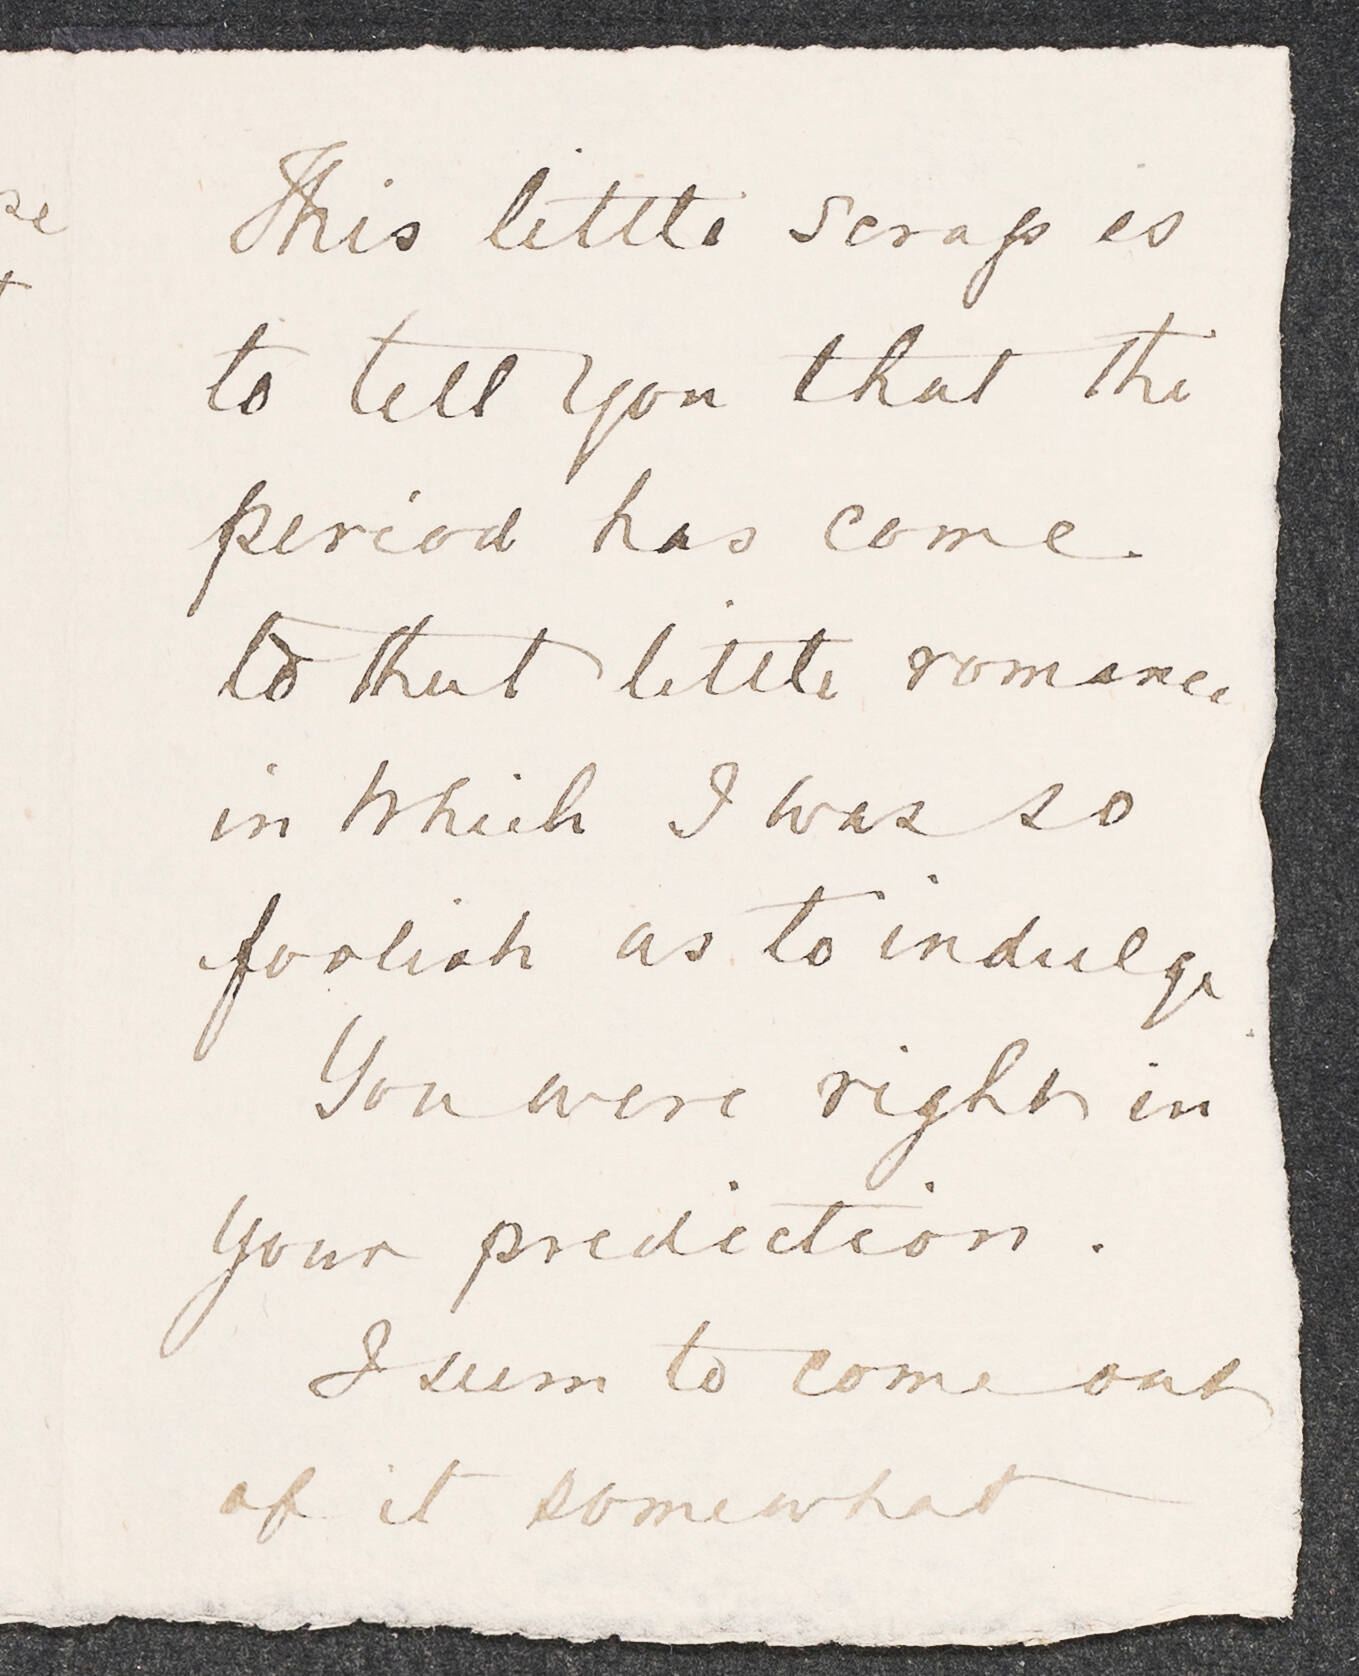 This little scrap is
to tell you that the
period has come.
to that little romance
in which I was so
foolish as to indulge
You were right in
your prediction.
I seem to come out
of it somewhat